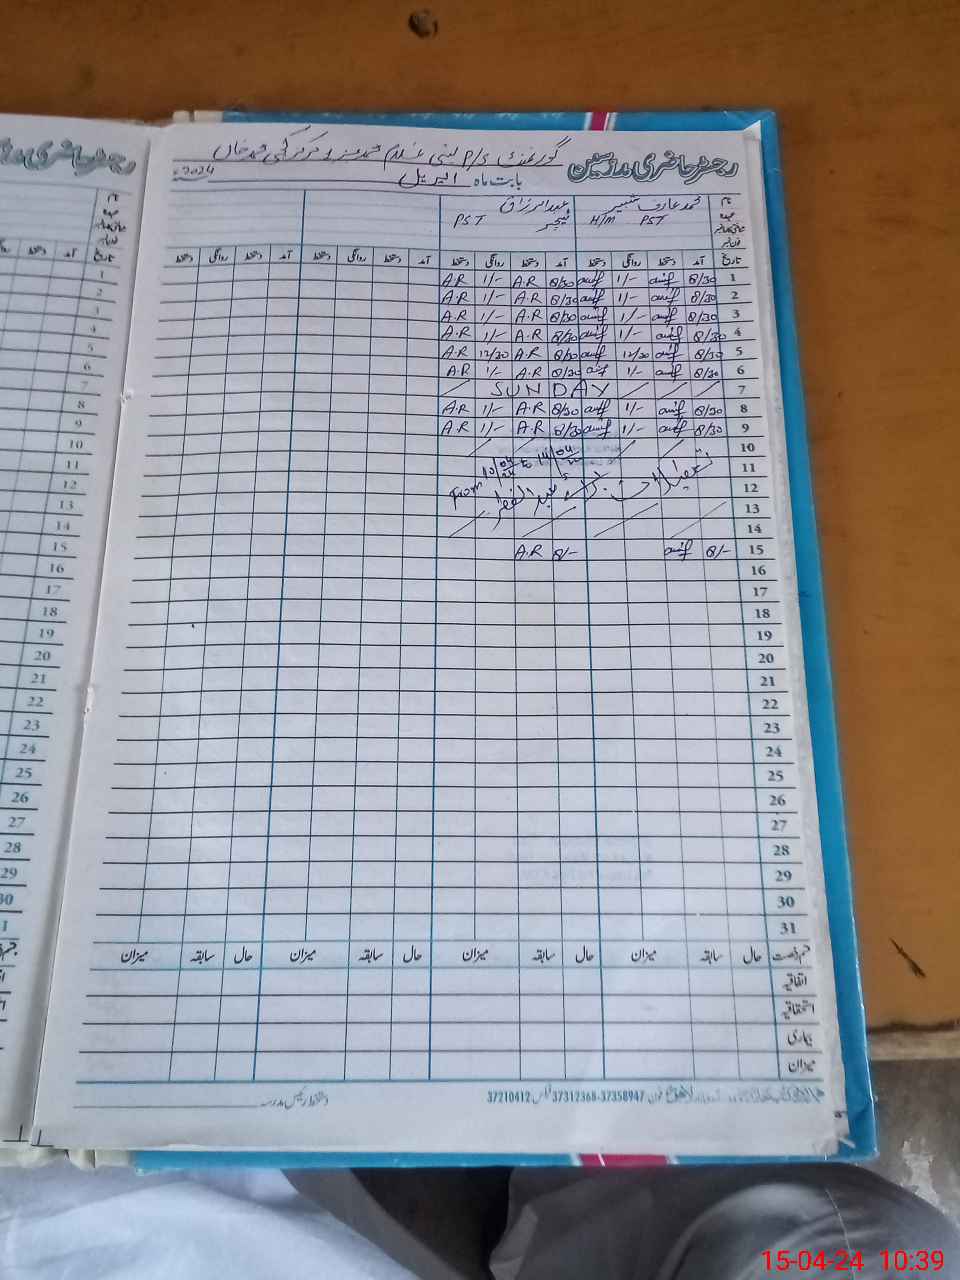 رجسٹر حاضری مدرسین
گورنمنٹ P/S بستی غلام محمد
بابت ماہ اپریل 2024
نام محمد عارف شبیر عبدالرزاق
عہدہ H/M PST ٹیچر PST
تاریخ آمد دستخط روانگی دستخط آمد دستخط روانگی دستخط آمد دستخط روانگی دستخط آمد دستخط روانگی دستخط
1 8/30 arif 1/- arif 8/30 A.R 1/- A.R
2 8/30 arif 1/- arif 8/30 A.R 1/- A.R
3 8/30 arif 1/- arif 8/30 A.R 1/- A.R
4 8/30 arif 1/- arif 8/30 A.R 1/- A.R
5 8/30 arif 12/20 arif 8/30 A.R 12/20 A.R
6 8/30 arif 1/- arif 8/30 A.R 1/- A.R
7 SUNDAY
8 8/30 arif 1/- arif 8/30 A.R 1/- A.R
9 8/30 arif 1/- arif 8/30 A.R 1/- A.R
10
11 From 10/04/24 to 14/04
12 تعطیلات برائے عید الفطر
13
14
15 8/- arif 8/- A.R
16
17
18
19
20
21
22
23
24
25
26
27
28
29
30
31
قسم رخصت حال سابقہ میزان حال سابقہ میزان حال سابقہ میزان حال سابقہ میزان
اتفاقیہ
استحقاقیہ
بیماری
میزان
فون 37358947-37312368 فیکس 37210412
دستخط رئیس مدرسہ
15-04-24 10:39